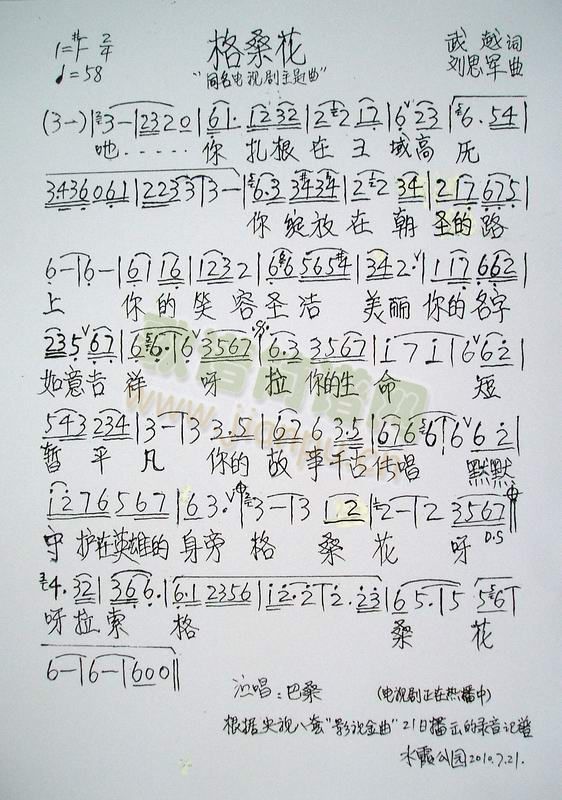 1=#F 2/4
♩=58
格桑花
"同名电视剧主题曲"
武越词
刘思军曲
(3-)|3-|2320|61·1232|2 2 17|6 23|6·54|
吔······你扎根在王域高厄
3436061|22333-|6·33434|2 2 34|217675|
你绽放在朝圣的路
6-|6-|6116|1232|66565#4|342·|117662|
上你的笑容圣洁美丽你的名字
235 67|66·|63567|6·33567|171|662|
如意吉祥呀拉你的生命短
543234|3-|33·5|6763·5|6766|662|
暂平凡你的故事千古传唱默默
1276567|63·|3-|312|2-|23567|
守护在英雄的身旁格桑花呀
D.S
4·32|366·|6·12356|12·2|2·23|65·|556|
呀拉索格桑花
6-|6-|600‖
演唱:巴桑
(电视剧正在热播中)
根据央视八套"影视金曲"21日播出的录音记谱
水霞公园2010.7.21.
歌谱简谱网
www.jianpu.cn